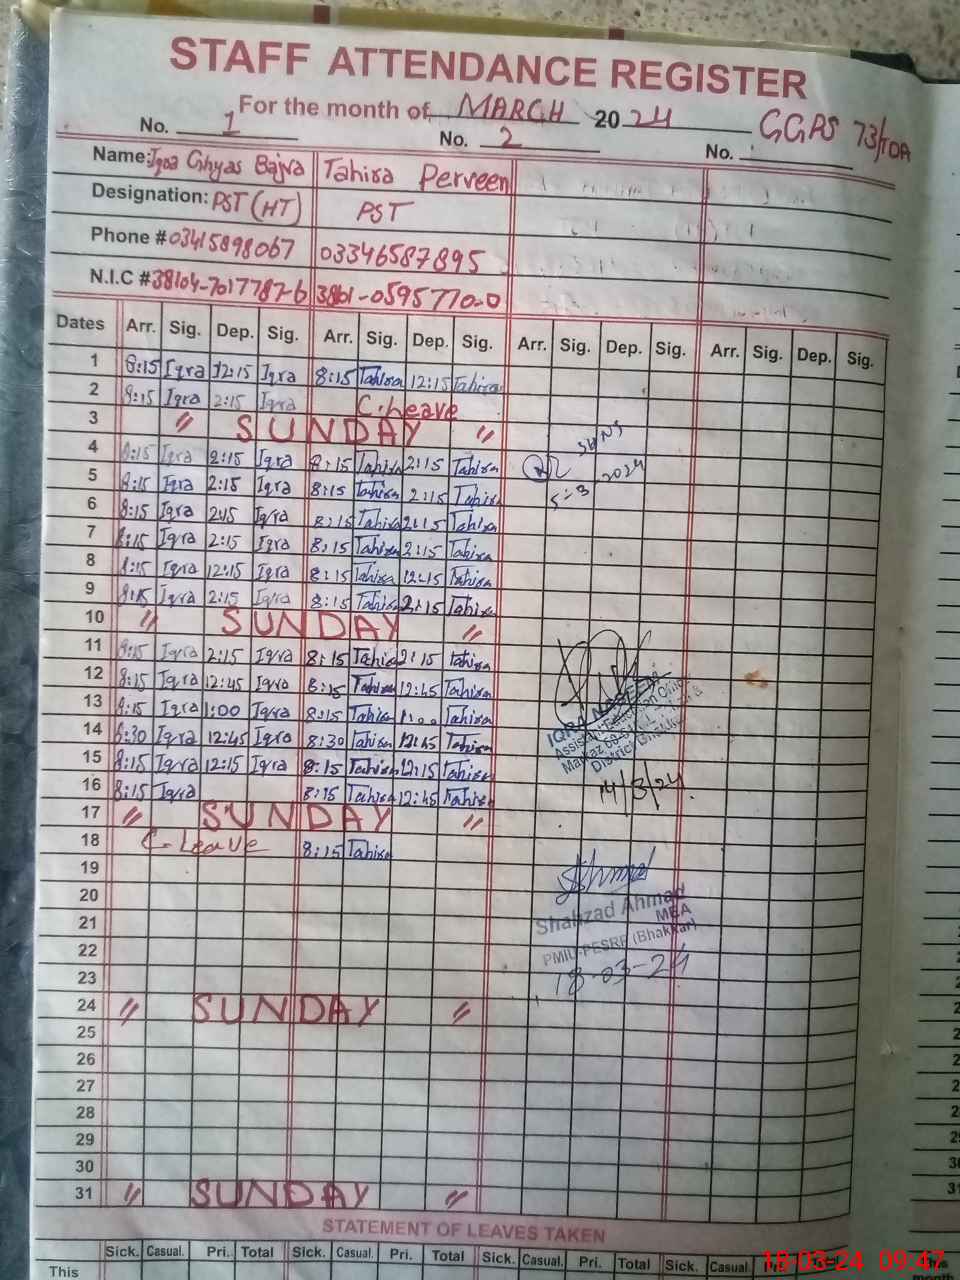 STAFF ATTENDANCE REGISTER
For the month of MARCH 2024 GGPS 73/TDA
No. 1 No. 2 No.
Name: Iqra Ghyas Bajva Tahira Perveen
Designation: PST (HT) PST
Phone # 03415898067 03346587895
N.I.C # 38104-7017787-6 38101-0595770-0
Dates Arr. Sig. Dep. Sig. Arr. Sig. Dep. Sig. Arr. Sig. Dep. Sig. Arr. Sig. Dep. Sig.
1 8:15 Iqra 12:15 Iqra 8:15 Tahira 12:15 Tahira
2 8:15 Iqra 2:15 Iqra C.Leave
3 " SUNDAY "
4 8:15 Iqra 2:15 Iqra 8:15 Tahira 2:15 Tahira
5 8:15 Iqra 2:15 Iqra 8:15 Tahira 2:15 Tahira
5-3-2024
6 8:15 Iqra 2:15 Iqra 8:15 Tahira 2:15 Tahira
7 8:15 Iqra 2:15 Iqra 8:15 Tahira 2:15 Tahira
8 8:15 Iqra 12:15 Iqra 8:15 Tahira 12:15 Tahira
9 8:15 Iqra 2:15 Iqra 8:15 Tahira 2:15 Tahira
10 " SUNDAY "
11 8:15 Iqra 2:15 Iqra 8:15 Tahira 2:15 Tahira
12 8:15 Iqra 12:45 Iqra 8:15 Tahira 12:45 Tahira
13 8:15 Iqra 1:00 Iqra 8:15 Tahira 1:00 Tahira
14 8:30 Iqra 12:45 Iqra 8:30 Tahira 12:45 Tahira
15 8:15 Iqra 12:15 Iqra 8:15 Tahira 12:15 Tahira
16 8:15 Iqra 8:15 Tahira 12:45 Tahira
IQRA NASEEM
Assistant Education Officer
Markaz
District Bhakkar
14/3/24
17 " SUNDAY "
18 C-Leave 8:15 Tahira
19
20
21
22
23
Shahzad Ahmad
MEA
PMIU-PESRP (Bhakkar)
18-03-24
24 " SUNDAY "
25
26
27
28
29
30
31 " SUNDAY "
STATEMENT OF LEAVES TAKEN
Sick. Casual. Pri. Total Sick. Casual. Pri. Total Sick. Casual. Pri. Total Sick. Casual Pri. Total
This
18-03-24 09:47